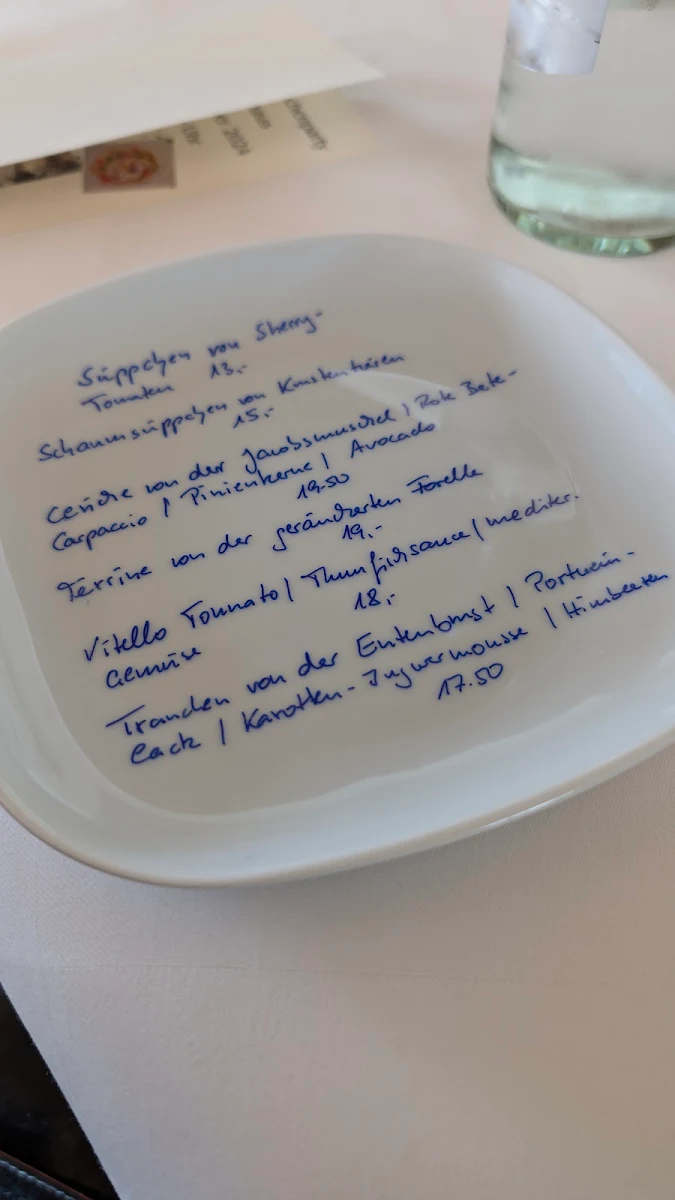 Süppchen von Sherry-
Tomaten 13.-
Schaumsüppchen von Krustentieren
15.-
Ceviche von der Jacobsmuschel | Rote Bete-
Carpaccio | Pinienkerne | Avocado
19.50
Terrine von der geräucherten Forelle
19.-
Vitello Tonnato | Thunfischsauce | mediter.
Gemüse 18.-
Tranchen von der Entenbrust | Portwein-
Lack | Karotten-Ingwermousse | Himbeeren
17.50
2024
Uhr